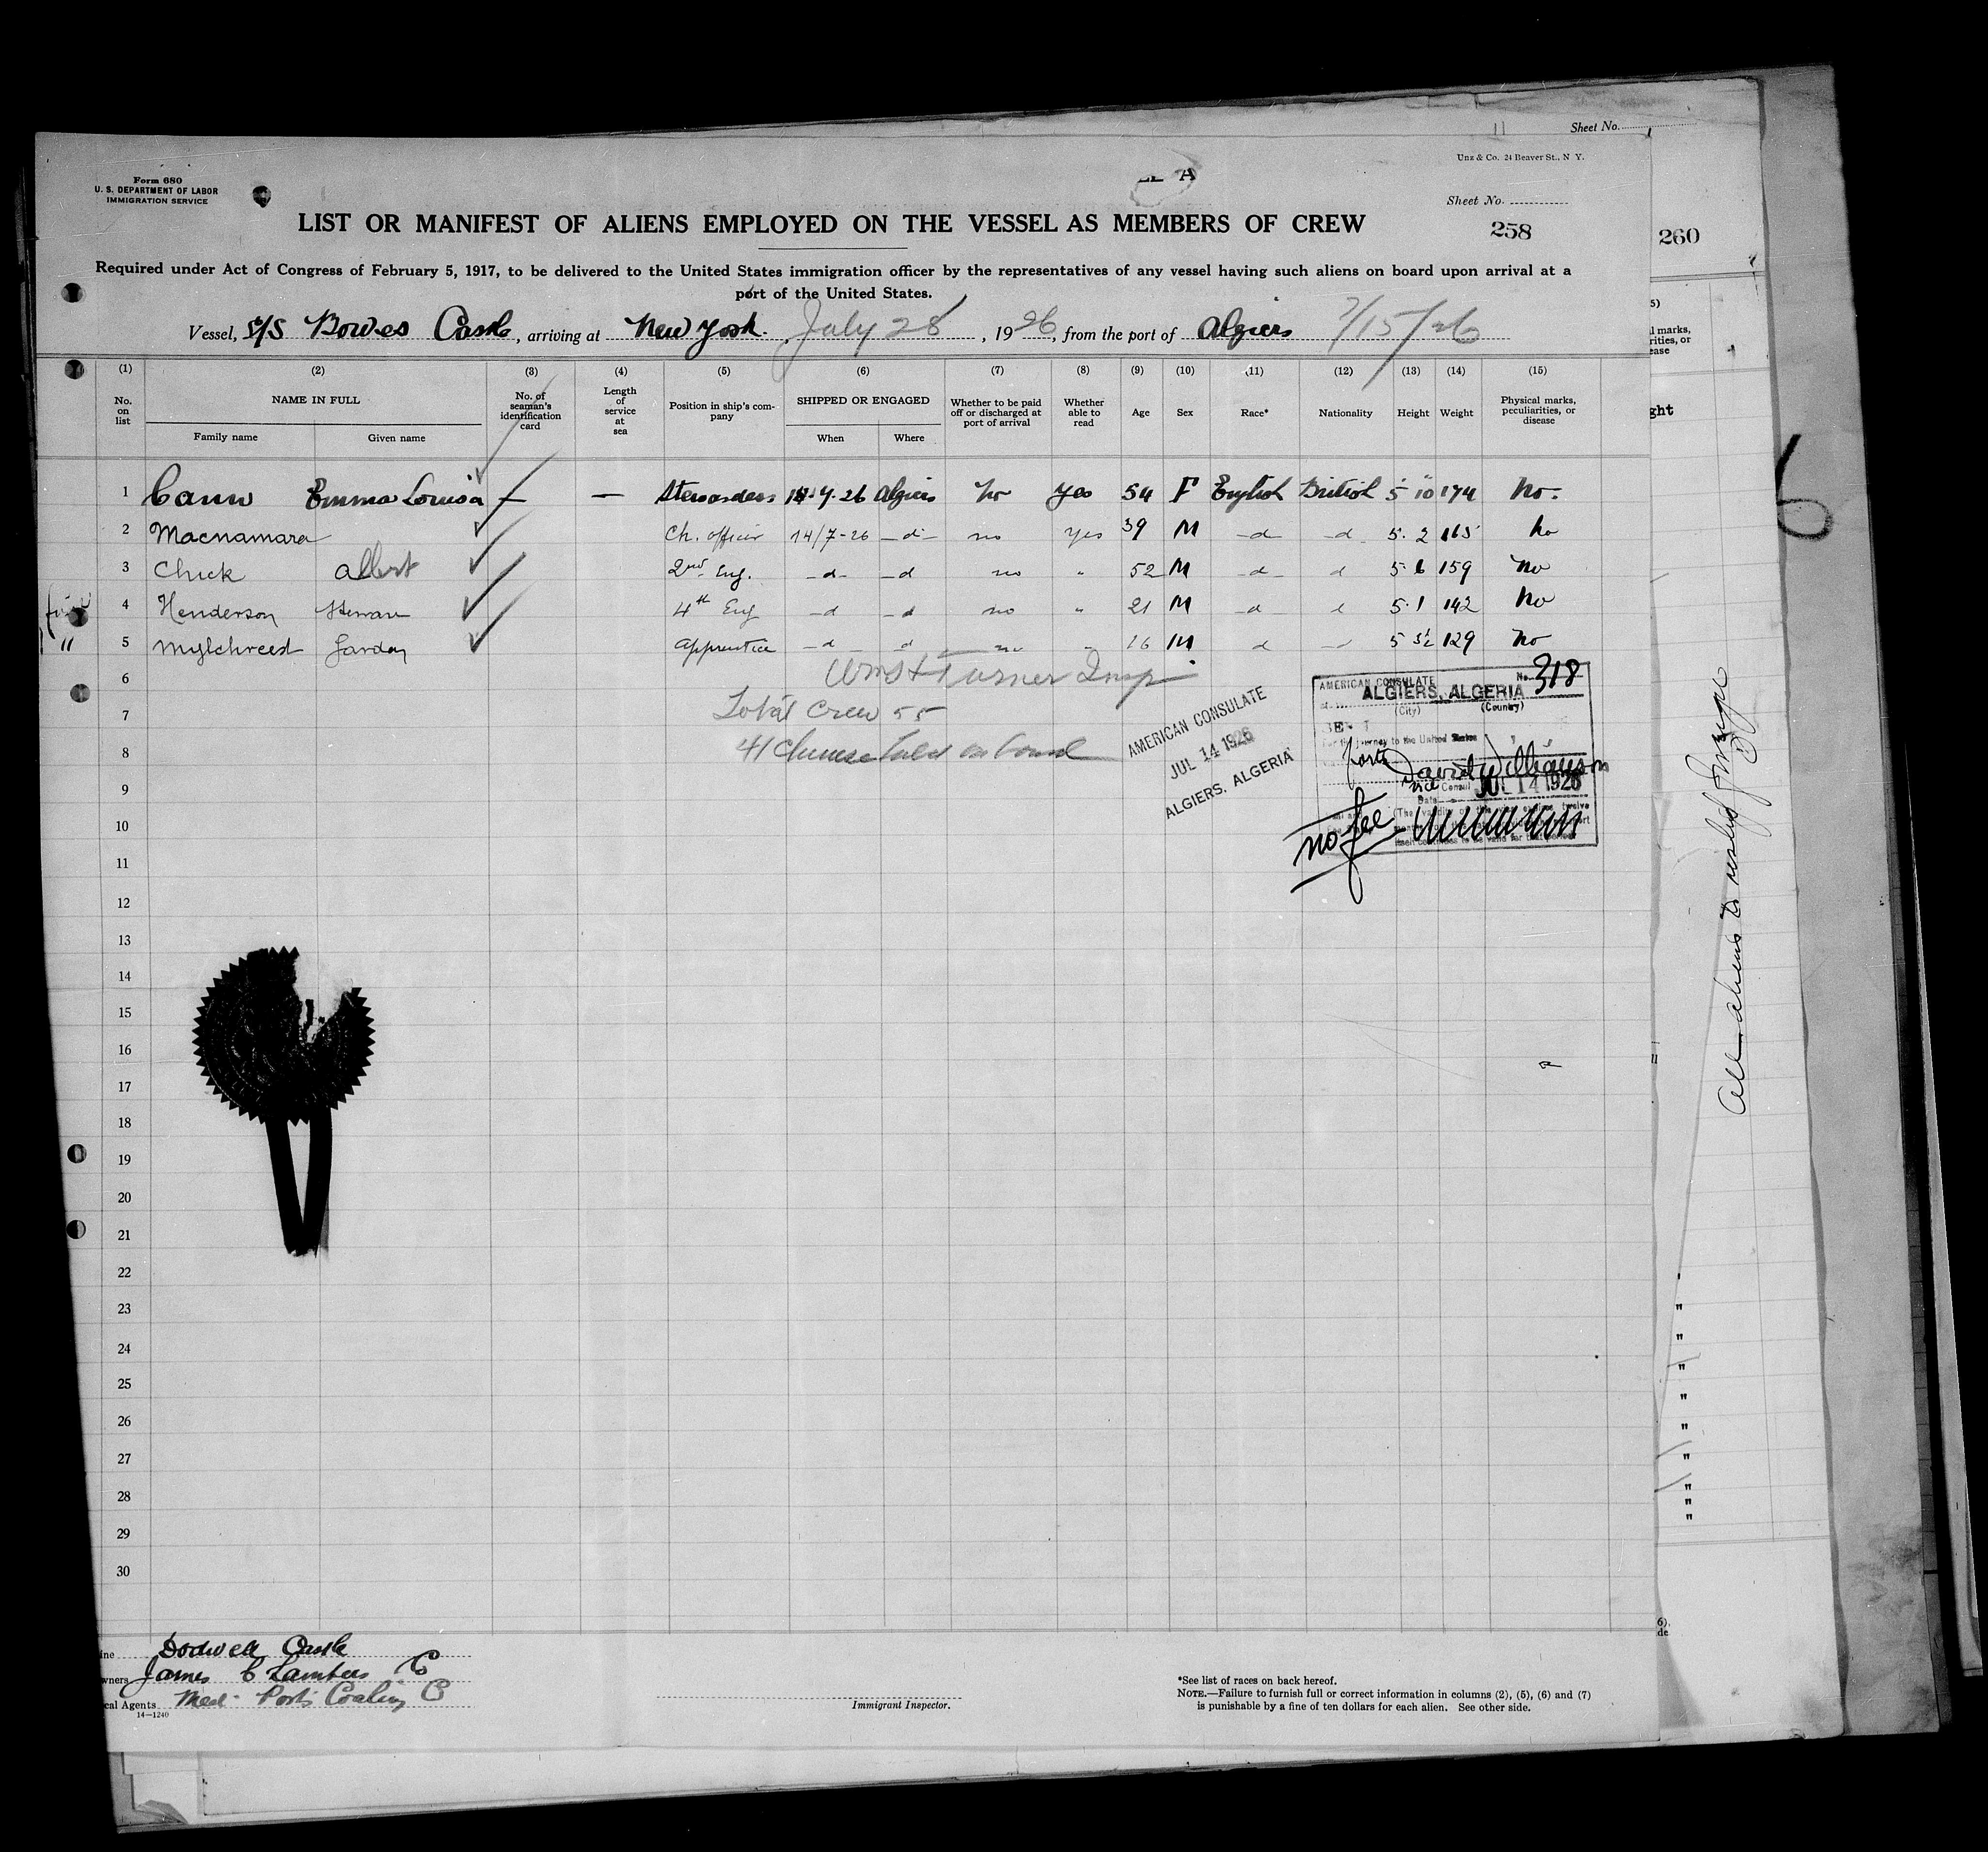 Sheet No.
Unz & Co. 24 Beaver St., N Y.
Form 680
U. S. DEPARTMENT OF LABOR
IMMIGRATION SERVICE
Sheet No.
LIST OR MANIFEST OF ALIENS EMPLOYED ON THE VESSEL AS MEMBERS OF CREW
258
260
Required under Act of Congress of February 5, 1917, to be delivered to the United States immigration officer by the representatives of any vessel having such aliens on board upon arrival at a
port of the United States.
Vessel, S/S Bowes Castle, arriving at New York. July 28, 1926, from the port of Algiers 7/15/26
(1) (2) (3) (4) (5) (6) (7) (8) (9) (10) (11) (12) (13) (14) (15)
No. on list NAME IN FULL Family name Given name No. of seaman's identification card Length of service at sea Position in ship's company SHIPPED OR ENGAGED When Where Whether to be paid off or discharged at port of arrival Whether able to read Age Sex Race* Nationality Height Weight Physical marks, peculiarities, or disease
1 Cann Emma Louisa — — Stewardess 14-7-26 Algiers No Yes 54 F English British 5 10 174 No.
2 Macnamara Ch. officer 14/7-26 -d- no Yes 39 M -d- -d- 5. 2 165 No
3 Chick Albert 2nd Eng. -d- -d no " 52 M -d- d 5 6 159 No
4 Henderson 4th Eng -d -d no " 21 M -d- d 5.1 142 No
5 Mylchreest Apprentice -d d no " 16 M d -d 5 3½ 129 No
6 Turner Insp
7 Total Crew 55
8 41 Chinese held on board
9
10
11
12
13
14
15
16
17
18
19
20
21
22
23
24
25
26
27
28
29
30
AMERICAN CONSULATE
JUL 14 1926
ALGIERS, ALGERIA
AMERICAN CONSULATE No. 318
ALGIERS, ALGERIA
(City) (Country)
For the journey to the United States
David Williamson
Vice Consul
Date JUL 14 1926
no fee
Dodwell Castle
James C Lambers Co
Local Agents Med. Ports Coaling Co
14—1240
Immigrant Inspector.
*See list of races on back hereof.
NOTE.—Failure to furnish full or correct information in columns (2), (5), (6) and (7)
is punishable by a fine of ten dollars for each alien. See other side.